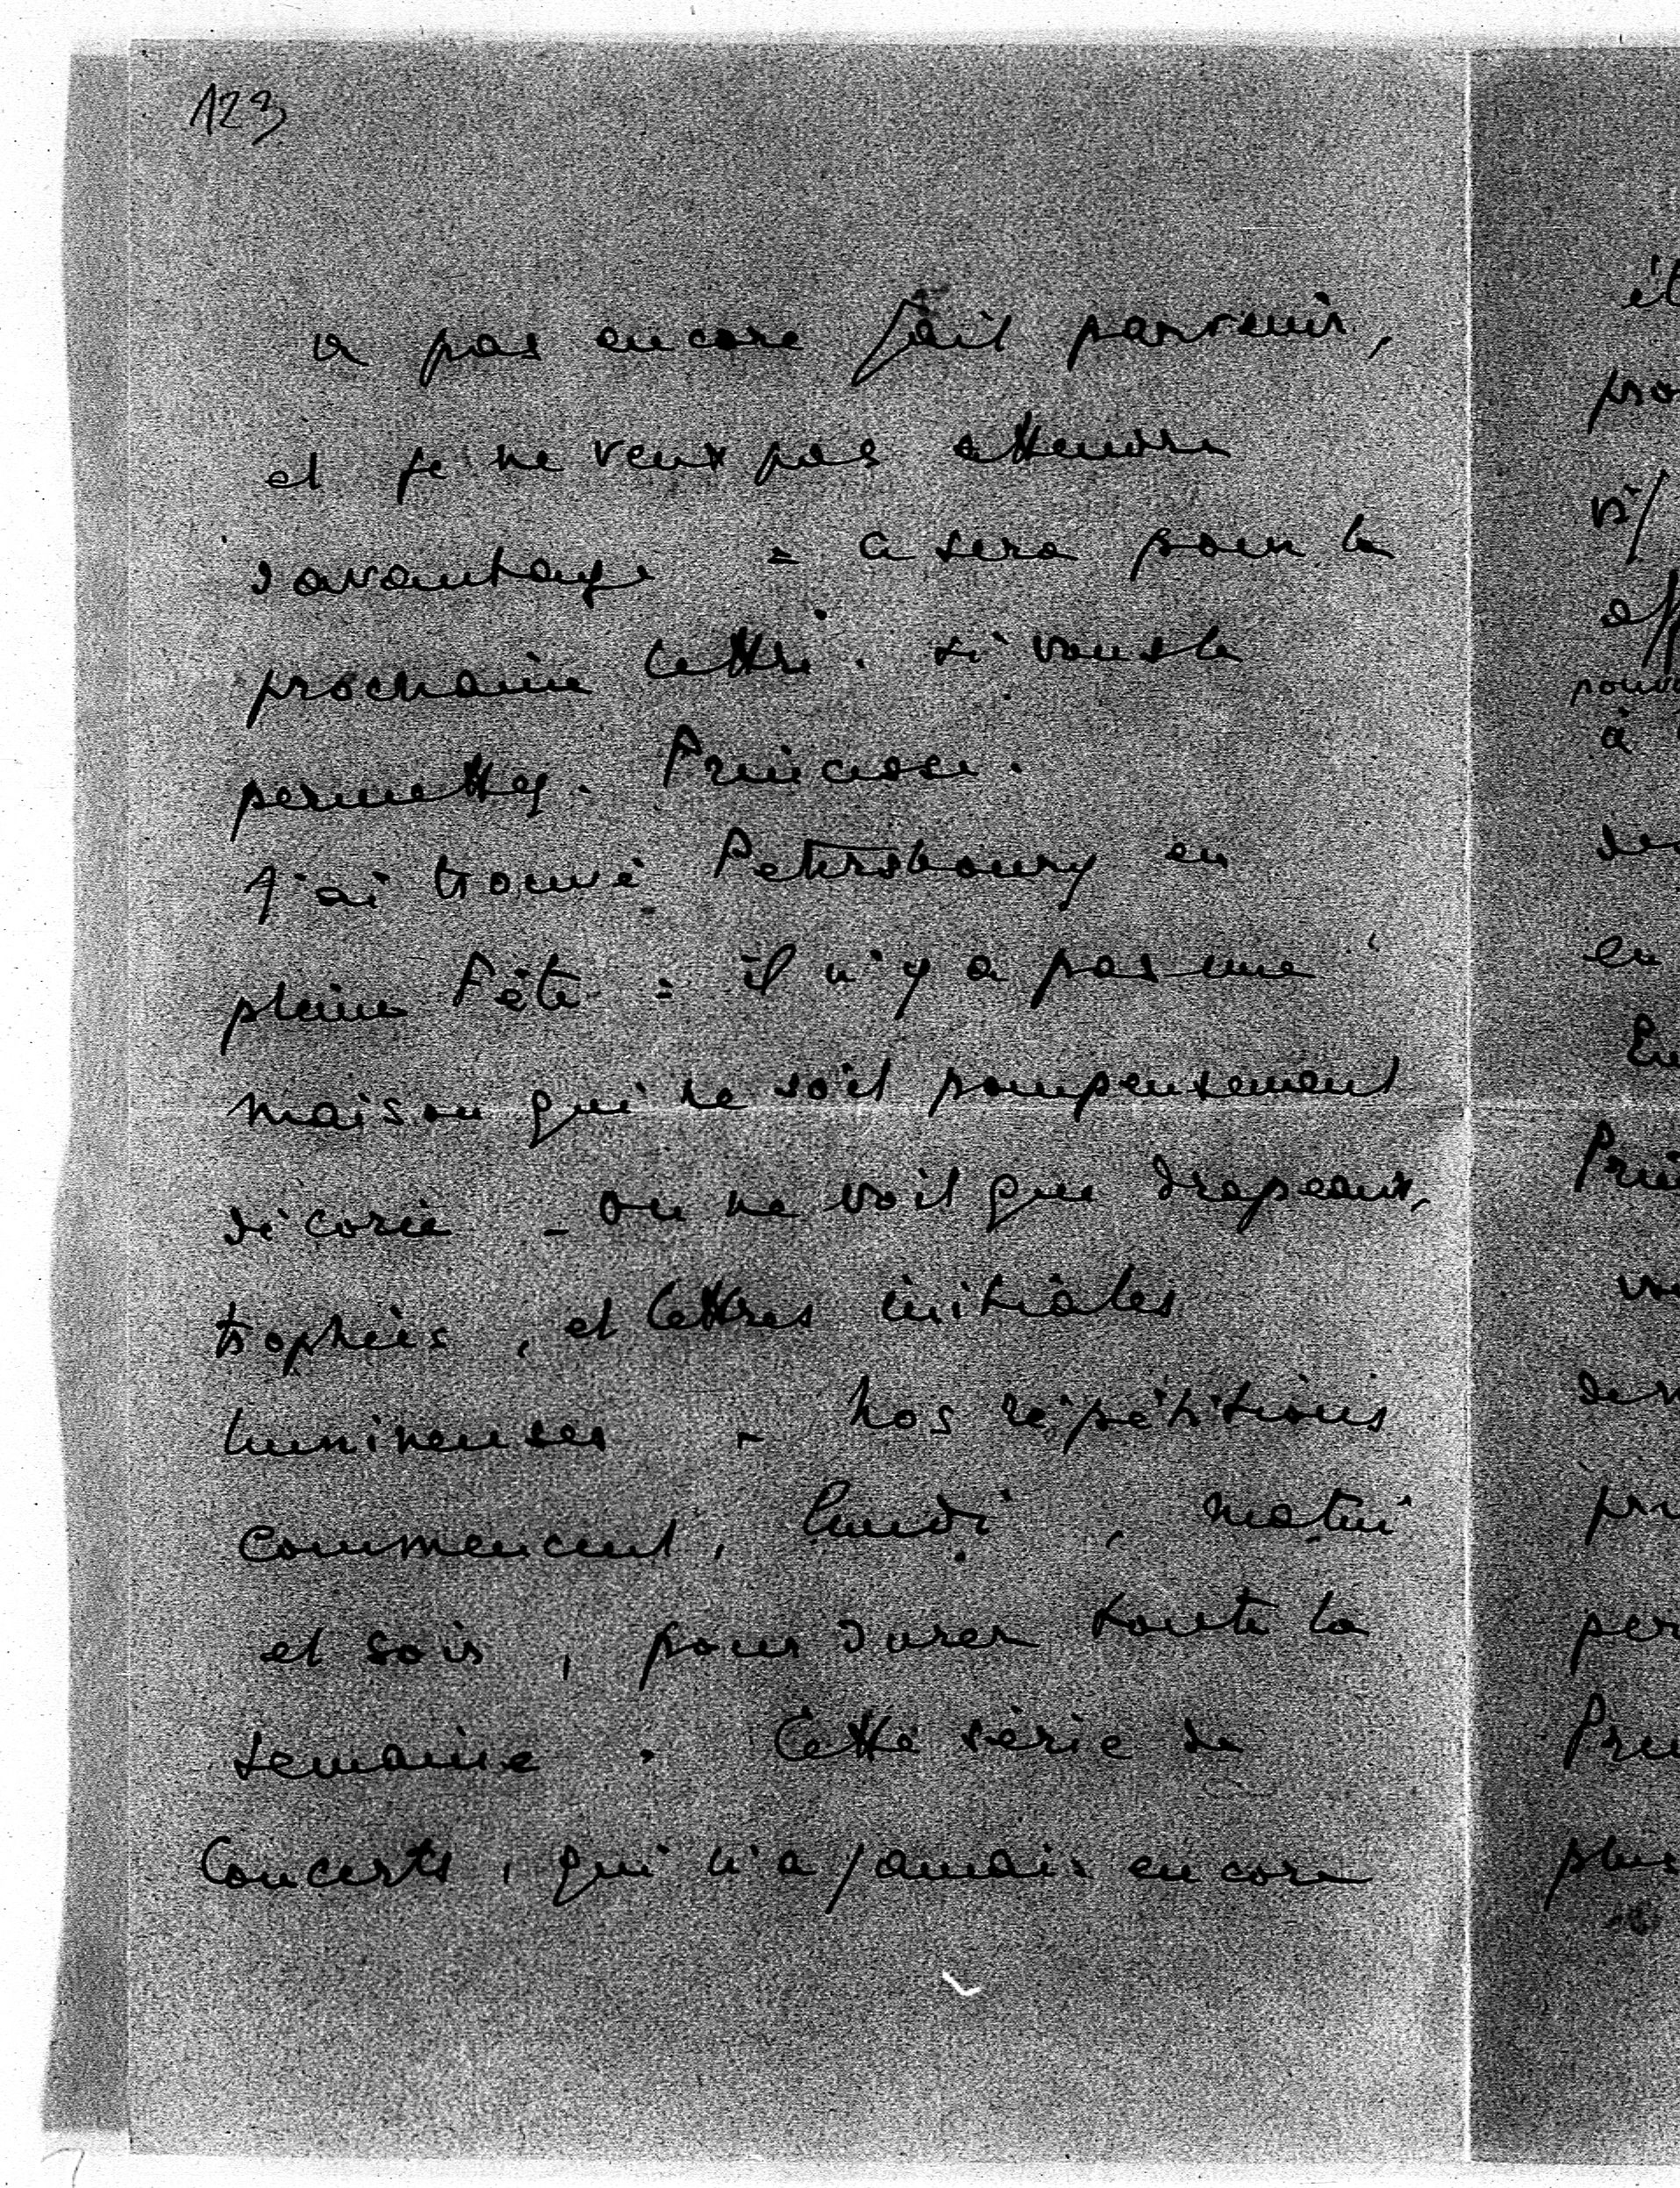 123
a pas encore fait parvenir,
et je ne veux pas attendre
davantage = ce sera pour la
prochaine lettre. si vous le
permettez. Princesse.
J'ai trouvé Petersbourg en
pleine Fête = il n'y a pas une
maison qui ne soit pompeusement
décorée - on ne voit que drapeaux,
trophées, et lettres initiales
lumineuses - Nos répétitions
commencent, lundi, matin
et soir, pour durer toute la
semaine. Cette série de
Concerts, qui n'a jamais encore
pro
à
en